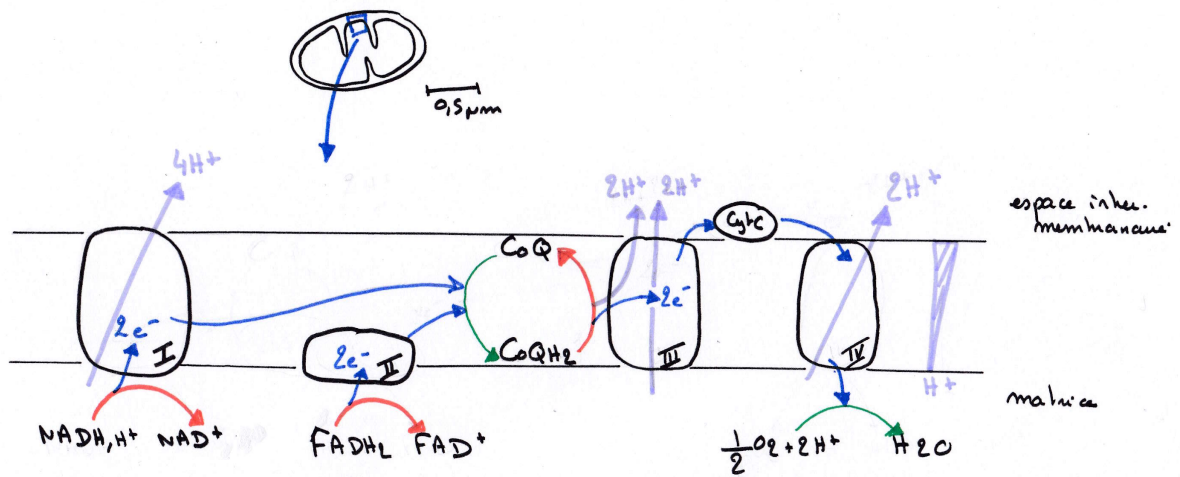 0,5 µm
4H+
2H+ 2H+
2H+
espace inter.
membranaire
CytC
CoQ
2e-
I
2e-
II
CoQH2
2e-
III
IV
H+
matrice
NADH,H+ NAD+
FADH2 FAD+
1/2 O2+2H+ H2O